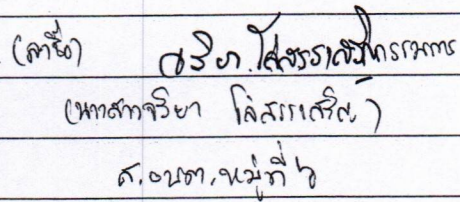 (ลงชื่อ) จริยา โล่สรรเสริญ กรรมการ
(นางสาวจริยา โล่สรรเสริญ)
ส.อบต.หมู่ที่ ๖